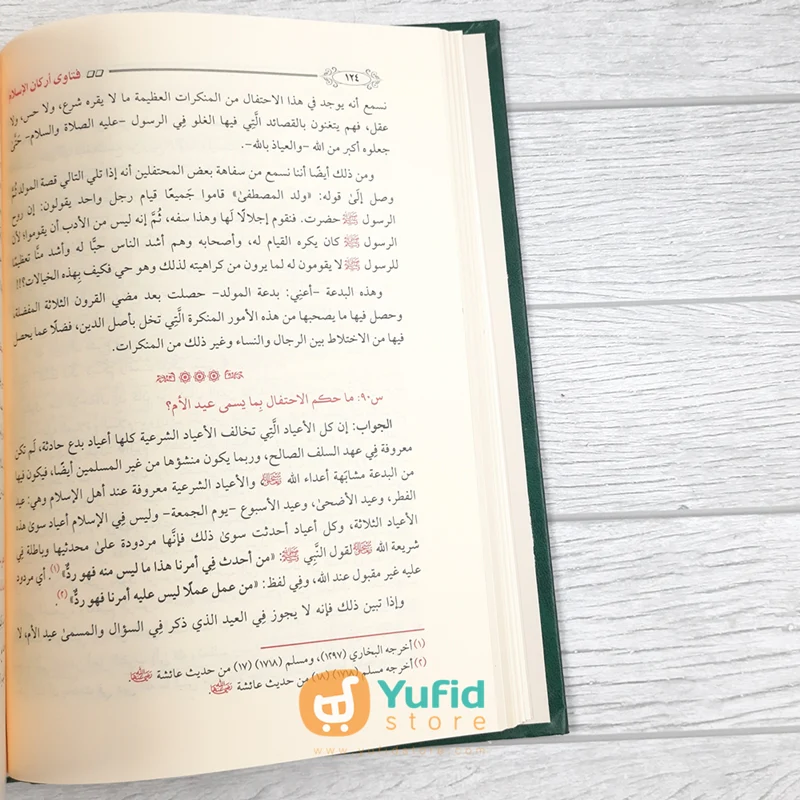 ١٢٤ فتاوى أركان الإسلام
نسمع أنه يوجد في هذا الاحتفال من المنكرات العظيمة ما لا يقره شرع، ولا حس، ولا
عقل، فهم يتغنون بالقصائد الَّتِي فيها الغلو فِي الرسول -عليه الصلاة والسلام- حَتَّى
جعلوه أكبر من الله -والعياذ بالله-.
ومن ذلك أيضًا أننا نسمع من سفاهة بعض المحتفلين أنه إذا تلي التالي قصة المولد ثُمَّ
وصل إلَى قوله: «ولد المصطفى» قاموا جَميعًا قيام رجل واحد يقولون: إن روح
الرسول ﷺ حضرت. فنقوم إجلالًا لَها وهذا سفه، ثُمَّ إنه ليس من الأدب أن يقوموا؛ لأن
الرسول ﷺ كان يكره القيام له، وأصحابه وهم أشد الناس حبًّا له وأشد منَّا تعظيمًا
للرسول ﷺ لا يقومون له لما يرون من كراهيته لذلك وهو حي فكيف بِهذه الخيالات؟!!
وهذه البدعة -أعنِي: بدعة المولد- حصلت بعد مضي القرون الثلاثة المفضلة،
وحصل فيها ما يصحبها من هذه الأمور المنكرة الَّتِي تخل بأصل الدين، فضلًا عما يحصل
فيها من الاختلاط بين الرجال والنساء وغير ذلك من المنكرات.
س٩٠: ما حكم الاحتفال بِما يسمى عيد الأم؟
الجواب: إن كل الأعياد الَّتِي تخالف الأعياد الشرعية كلها أعياد بدع حادثة، لَم تكن
معروفة فِي عهد السلف الصالح، وربما يكون منشؤها من غير المسلمين أيضًا، فيكون فيها
من البدعة مشابَهة أعداء الله والأعياد الشرعية معروفة عند أهل الإسلام وهي: عيد
الفطر، وعيد الأضحى، وعيد الأسبوع -يوم الجمعة- وليس فِي الإسلام أعياد سوى هذه
الأعياد الثلاثة، وكل أعياد أحدثت سوى ذلك فإنَّها مردودة على محدثيها وباطلة فِي
شريعة الله لقول النَّبِي ﷺ: «من أحدث فِي أمرنا هذا ما ليس منه فهو ردٌّ» (١). أي مردود
عليه غير مقبول عند الله، وفِي لفظ: «من عمل عملًا ليس عليه أمرنا فهو ردٌّ» (٢).
وإذا تبين ذلك فإنه لا يجوز فِي العيد الذي ذكر فِي السؤال والمسمى عيد الأم، لا
(١) أخرجه البخاري (٢٦٩٧)، ومسلم (١٧١٨) (١٧) من حديث عائشة
(٢) أخرجه مسلم (١٧١٨) (١٨) من حديث عائشة
Yufid
store